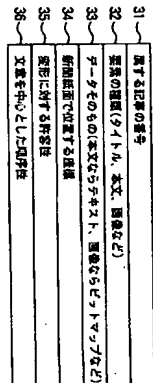 31 属する記事の番号
32 要素の種類(タイトル、本文、画像など)
33 データそのもの(本文ならテキスト、画像ならビットマップなど)
34 新聞紙面で位置する座標
35 変形に対する許容性
36 文書を中心とした順序性